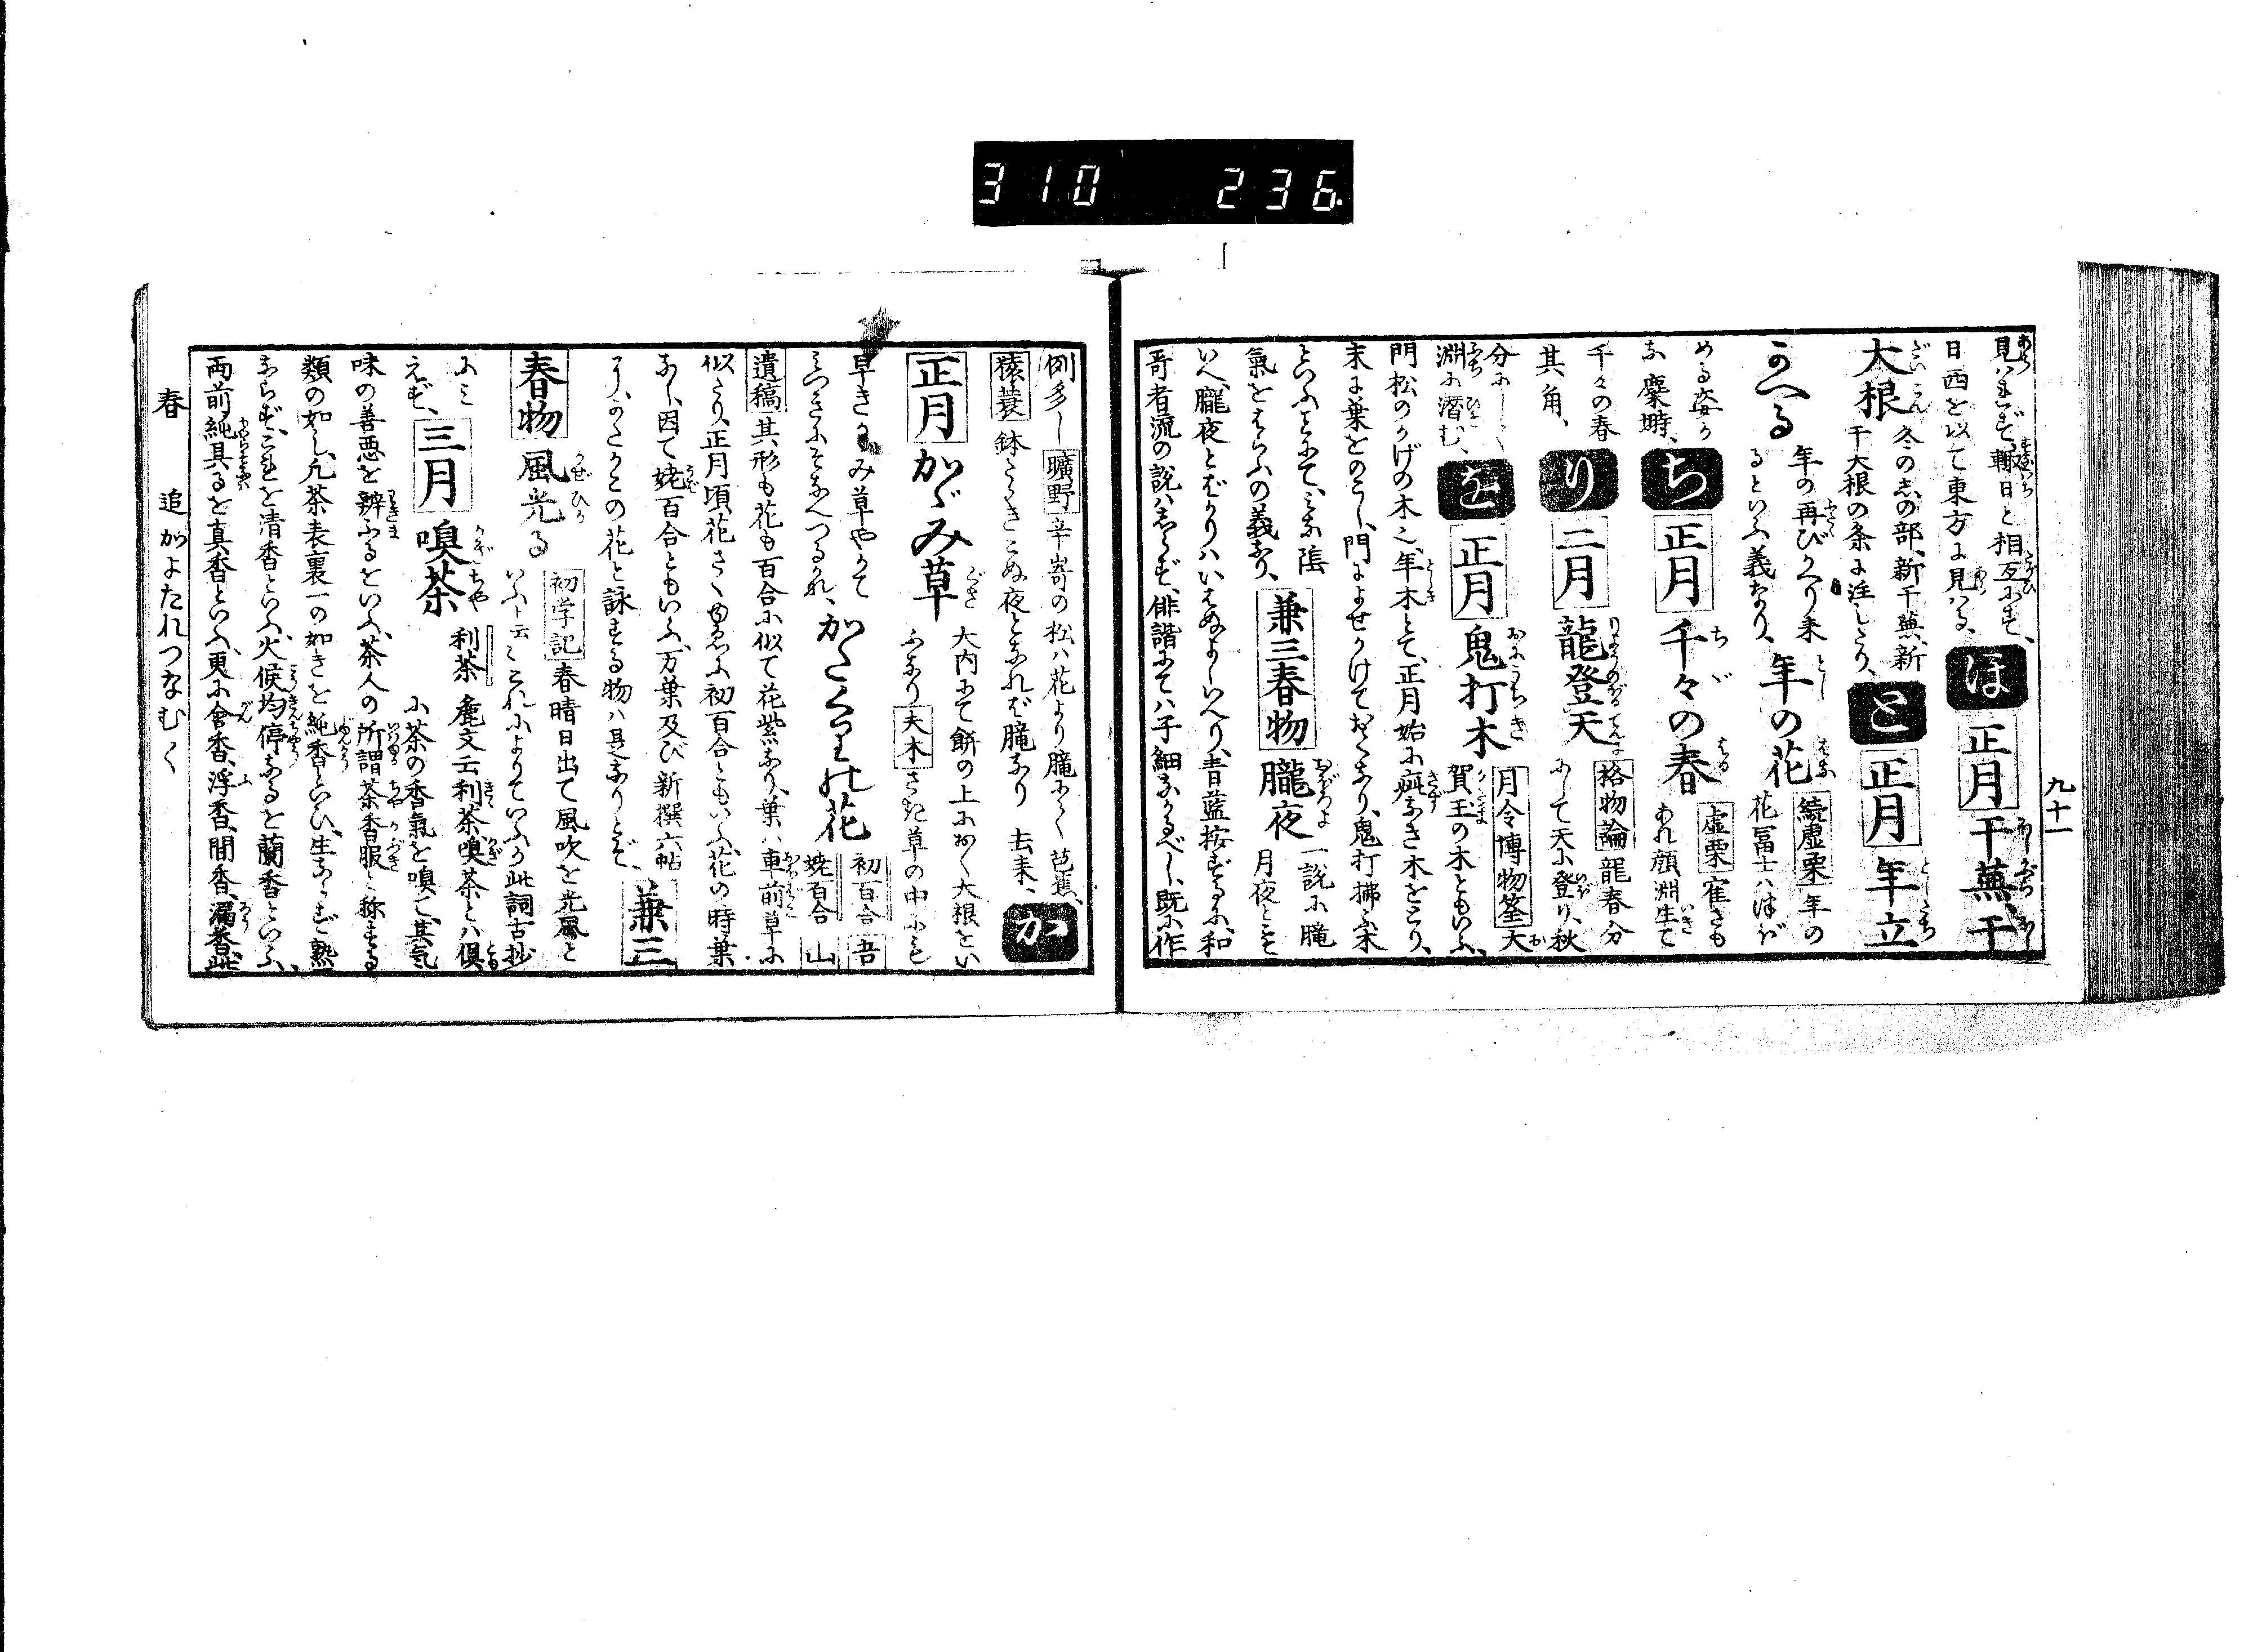 310 236
九十一
見はさず、朝日と相互にす、
日西を以て東方に見はる、
ほ
正月
干蕪、干
大根
冬の志の部、新干蕪、新
干大根の条に注したり、
と
正月
年立
かへる
年の再びかへり来
るといふ義なり、
年の花
続虚栗
年の
花富士はほど
める姿か
な 麋塒、
ち
正月
千々の春
虚栗
雀さも
あれ顔淵生て
千々の春
其角、
り
二月
龍登天
格物論
龍春分
にして天に登り、秋
分にして
淵に潜む、
を
正月
鬼打木
月令博物筌
大
賀玉の木ともいふ、
門松のかげの木也、年木とて、正月始に疵なき木をとり、
末に葉をのこし、門によせかけておくなり、鬼打拂ふ木
といふことにて、
氣をはらふの義なり、
兼三春物
朧夜
一説に朧
月夜とこそ
いへ、朧夜とばかりはいはぬよしいへり、青藍按ずるに、和
哥者流の説はしらず、俳諧にては子細なかるべし、既に作
例多し
曠野
辛崎の松は花より朧にて 芭蕉、
猿蓑
鉢たゝきこぬ夜となれば朧なり 去来、
か
正月
かゞみ草
大内にて餅の上におく大根をい
ふなり
夫木
草の中にも
かたくりの花
初百合
姥百合
吾
山
遺稿
其形も花も百合に似て花紫なり、葉は車前草に
似たり、正月頃花さくゆゑに初百合ともいふ、花の時葉
なし、因て姥百合ともいふ、万葉及び新撰六帖
かたかこの花と詠ずる物は是なりとぞ、
兼三
春物
風光る
初学記
春晴日出て風吹を光風と
いふ云々これによりていふか此詞古抄
にみ
えず、
三月
嗅茶
利茶
鹿文云利茶嗅茶とは倶
に茶の香氣を嗅て、其氣
味の善悪を辨ふるをいふ、茶人の所謂茶香服と称する
類の如し、凡茶表裏一の如きを純香といひ、生ならず熟
ならず、これを清香といふ、火候均停なるを蘭香といふ、
雨前純具るを真香といふ、更に含香、浮香、間香、漏香、此
春 追 かよたれつなむく